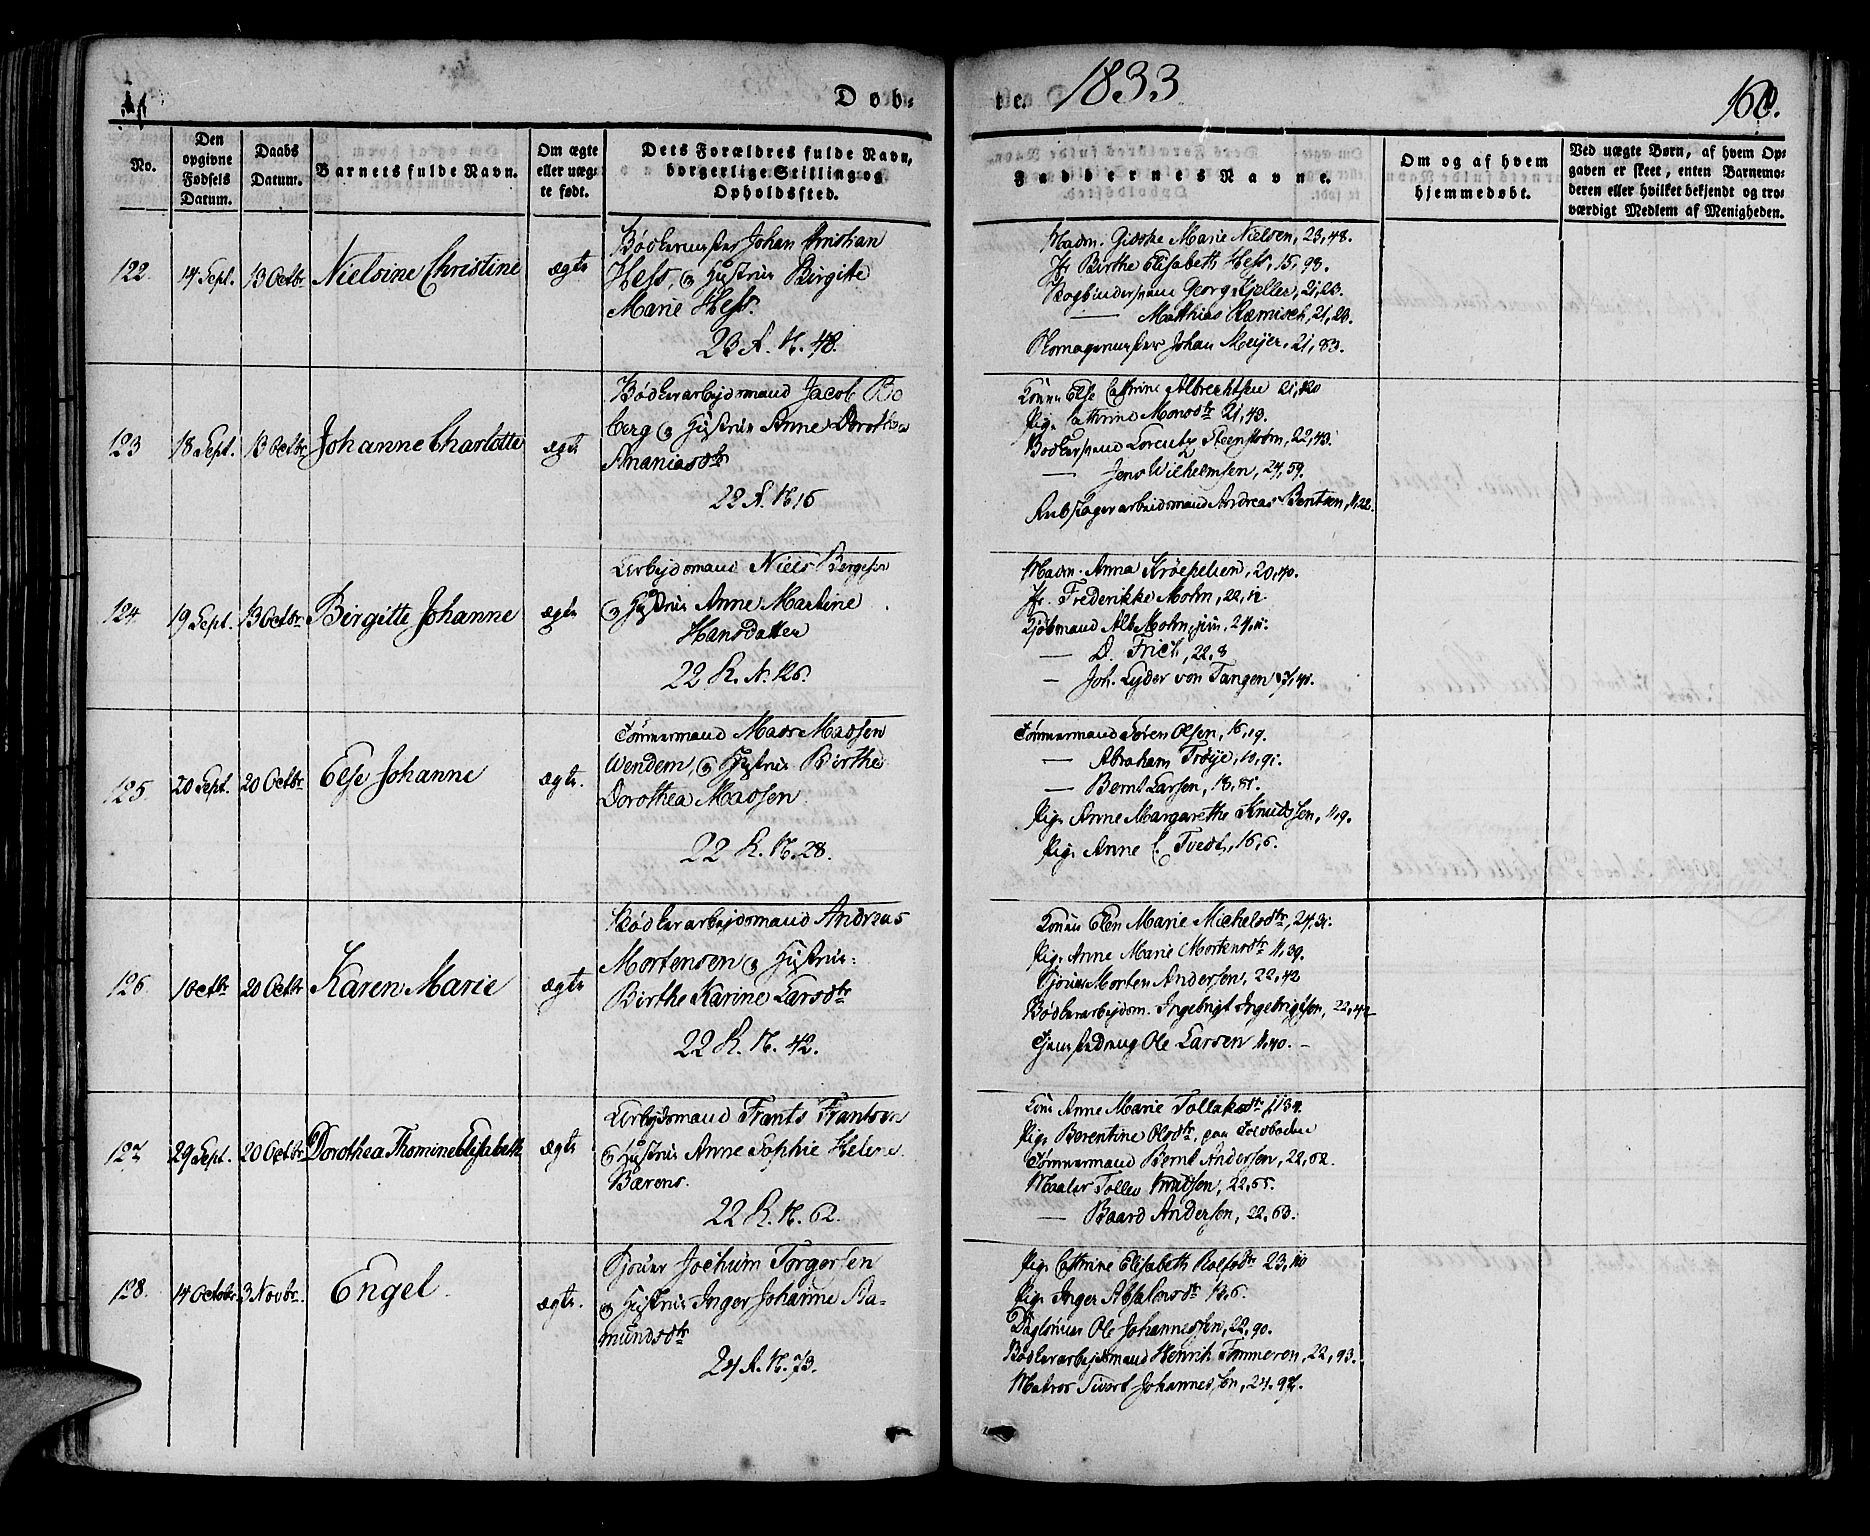 Døb-
te. 1833
160.
No.
Den opgivne Fødsels Datum.
Daabs Datum.
Barnets fulde Navn.
Om ægte eller uægte født.
Dets Forældres fulde Navn, borgerlige Stilling og Opholdssted.
Faddernes Navne.
Om og af hvem hjemmedøbt.
Ved uægte Børn, af hvem Opgaven er skeet, enten Barnemoderen eller hvilket bekjendt og troværdigt Medlem af Menigheden.
122. 14 Sept. 13 Octbr Nielsine Christine ægte
Bødkermester Johan Christian
Hess, og Hustrue Birgitte
Marie Hess.
23 R. N. 48.
Madm. Gidske Marie Nielsen, 23,48.
Jfr Birthe Elisabeth Hess, 15,93.
Bogbindersvend Georg Kjeller, 21,23.
— Matthias Ræmisch, 21,23.
Johan Meijer, 21,83.
123 18 Sept. 13 Octbr Johanne Charlotte ægte
Bødkerarbejdsmand Jacob Bo
berg og Hustrue Anne Dorothea
Ananiasdtr
22 R. N. 16
Konen Else Cathrine Albrechtsen 21,120
Pig. Cathrine Monsdtr 21,43.
Bødkersvend Lorentz Steenstrøm, 22,43.
— Jens Wilhelmsen, 24,59.
arbeidsmand Andreas Bentsen, 11,22.
124. 19 Sept. 13 Octbr Birgitte Johanne ægte
Arbejdsmand Niels Børgesen
og Hustrue Anne Martine
Hansdatter
22 R. N. 126.
Madm. Anna Krøepelien, 20,40.
Jfr. Frederikke Mohn, 22,12.
Kjøbmand Alb Mohn, jun, 24,11.
— D. Frich, 22,8
— Joh. Lyder von Tangen 17,41.
125. 20 Sept. 20 Octbr Else Johanne ægte.
Tømmermand Mads Madsen
Wendem, og Hustrue Birthe
Dorothea Madsen.
22 R. N. 28.
Tømmermand Søren Olsen, 16,19.
— Abraham Trøye, 10,91.
— Bernt Larsen, 13,81.
Pig. Anne Margarethe Knudssen, 11,9.
Pig. Anne C. Tvedt, 16,6.
126. 1 Octbr 20 Octbr Karen Marie ægte
Bødkerarbejdsmand Andreas
Mortensen og Hustrue
Birthe Karine Larsdtr
22 R. N. 42.
Konen Elen Marie Michelsdtr, 24,31.
Pig. Anne Marie Mortensdtr 11,39.
Morten Andersen, 22,42
Bødkerarbejdsm. Ingebrigt Ingebrigtsen, 22,42
Tjenestedreng Ole Larsen 11,40. –
127. 29 Sept. 20 Octbr Dorothea Thomine Elisabeth ægte
Arbejdsmand Frants Frantsen
og Hustrue Anne Sophie Helene
Bærens.
22 R. N. 62.
Kone Anne Marie Tollaksdtr 1,134.
Pig. Berentine Olsdtr, paa Toldboden
Tømmermand Bernt Andersen, 22,62.
Maaler Tollev Knudsen, 22,65.
— Baard Andersen, 22,63.
128. 14 Octobr. 3 Novbr. Engel. ægte.
Jochum Torgersen
og Hustrue Inger Johanne Aa-
mundsdtr
24 R. N. 73.
Pig. Cathrine Elisabeth Roelsdtr 23,110
Pig. Inger Absalonsdtr 13,6.
Ole Johannessen, 22,90.
Bødkerarbejdsmand Henrik Immeron, 22,93.
Matros Sivert Johannessen, 24,97.